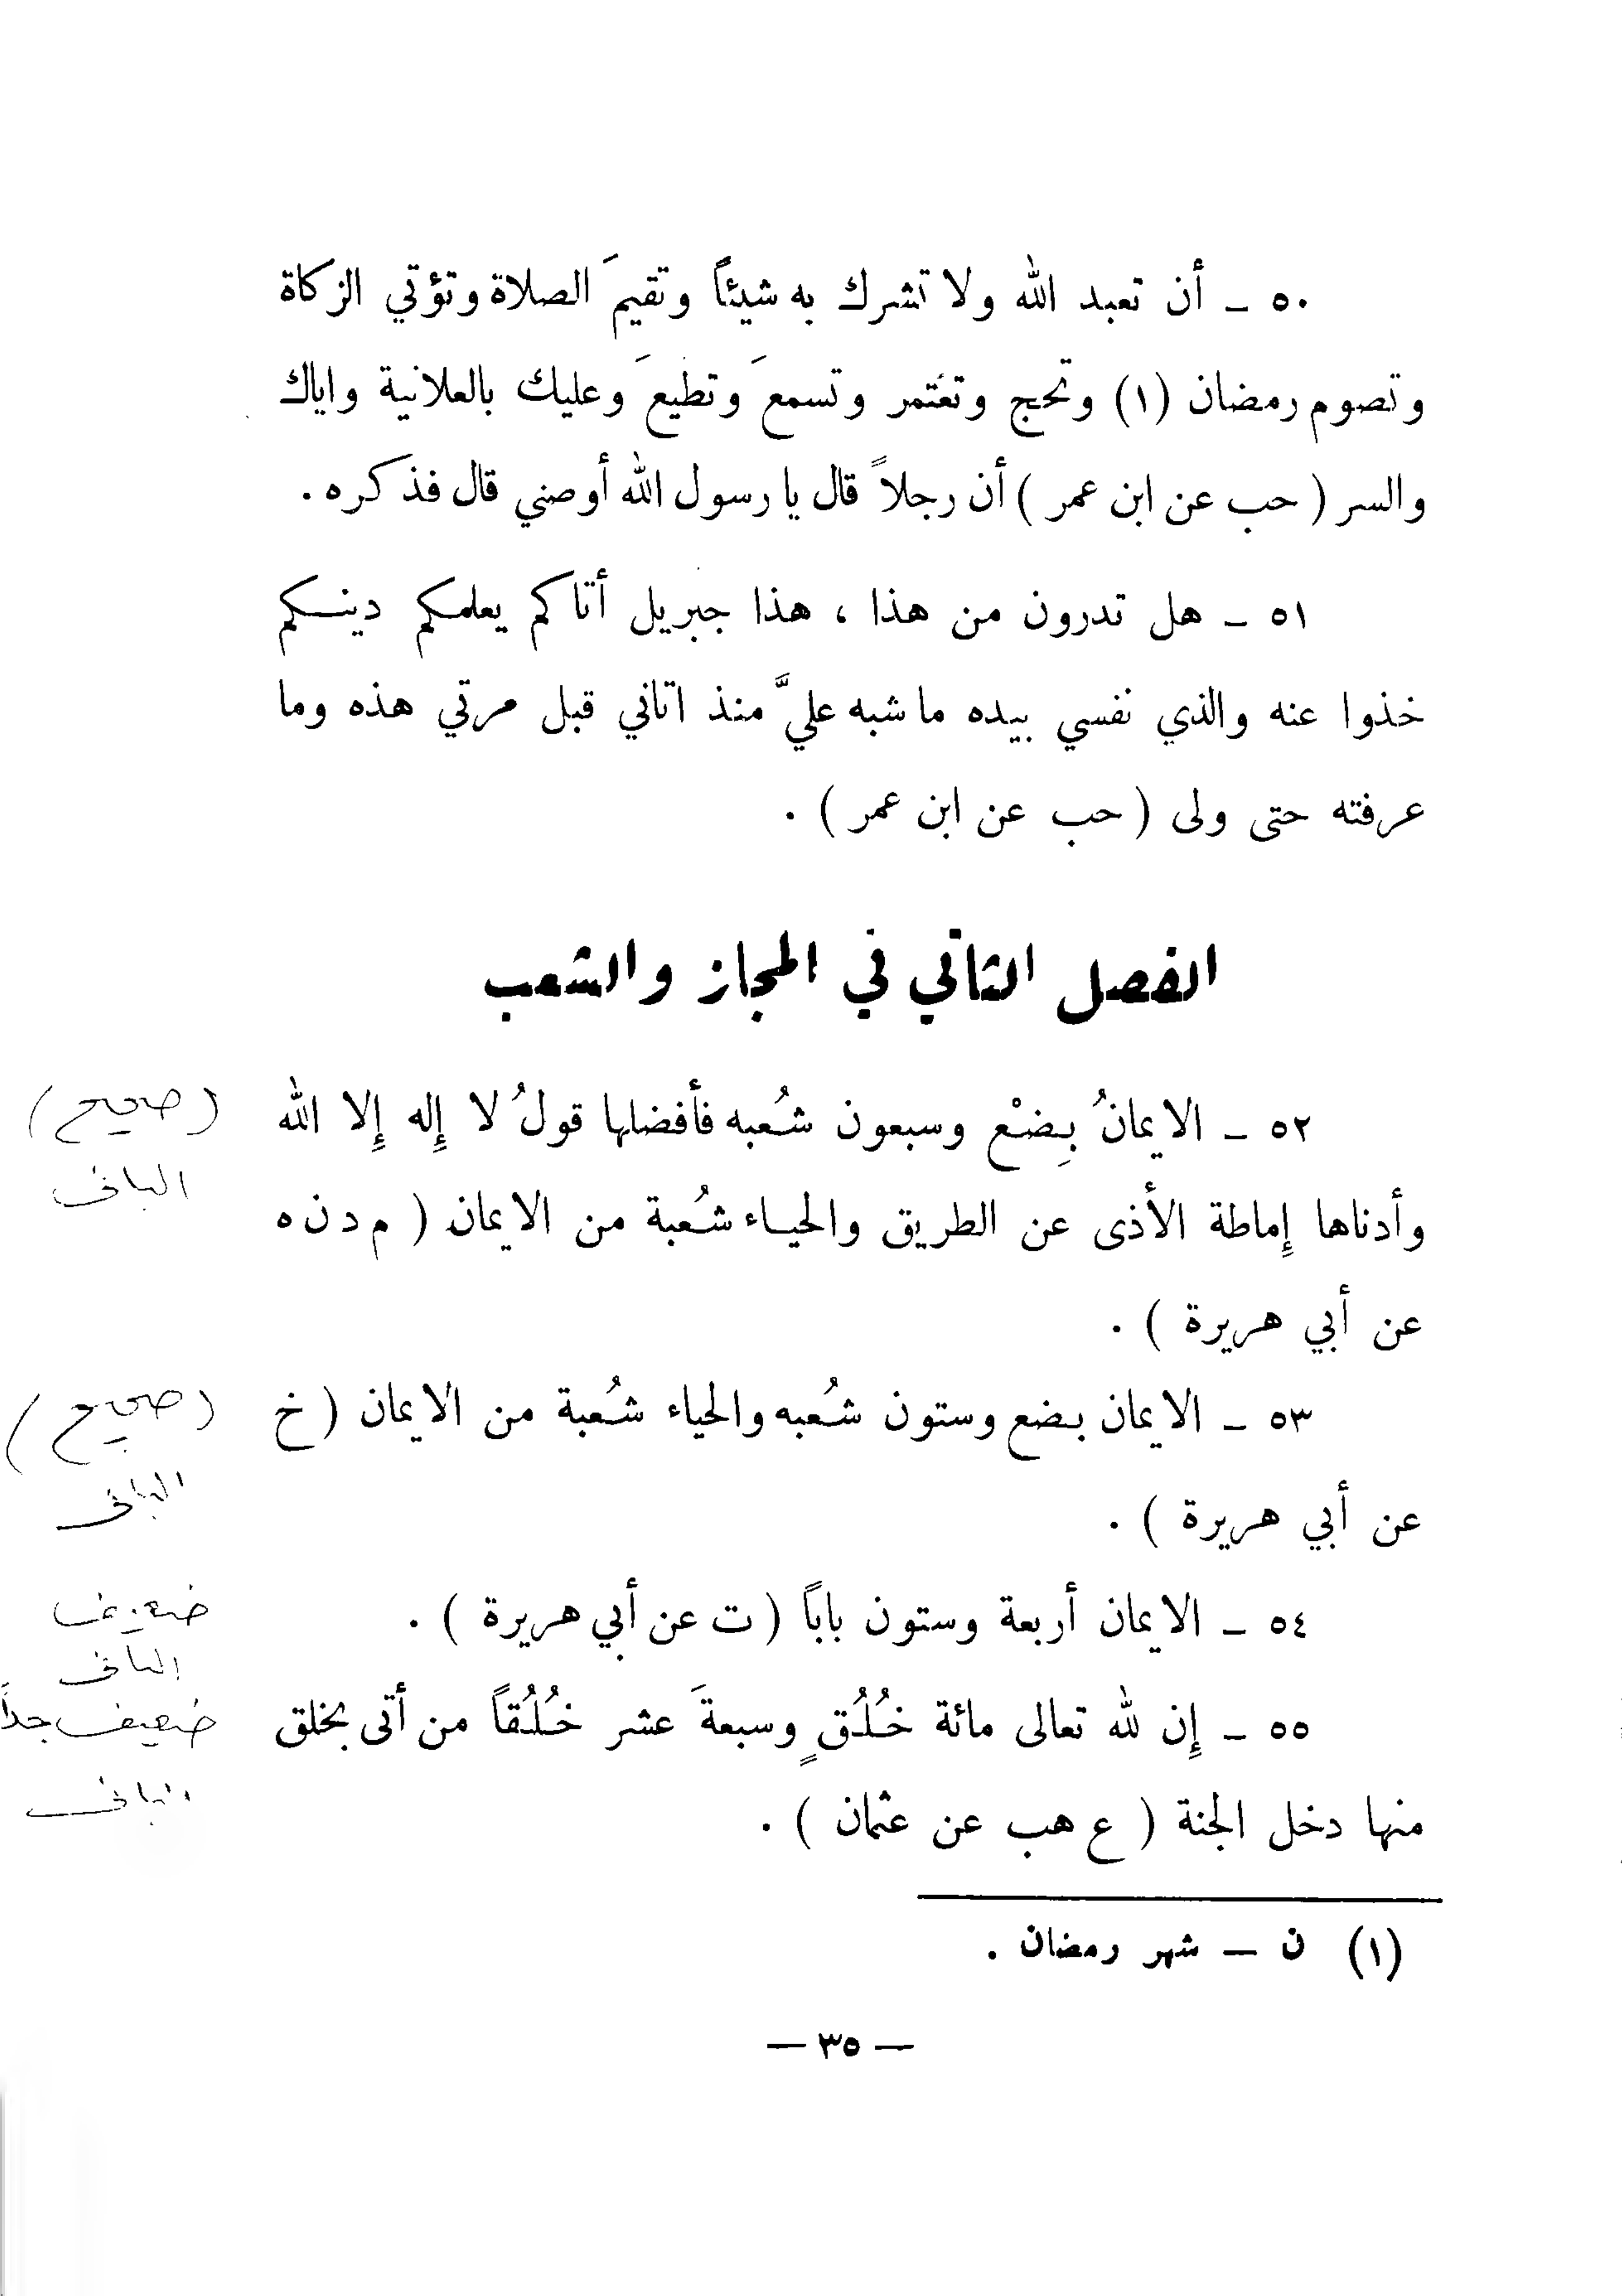 ٥٠ ــ أن تعبد الله ولا تشرك به شيئاً وتقيمَ الصلاة وتؤتي الزكاة
وتصوم رمضان (١) وتحج وتعْتمر وتسمعَ وتطيعَ وعليك بالعلانية واياك
والسر ( حب عن ابن عمر ) أن رجلاً قال يا رسول الله أوصني قال فذكره .
٥١ ــ هل تدرون من هذا ، هذا جبريل أتاكم يعلمكم دينـكم
خذوا عنه والذي نفسي بيده ما شبه عليَّ منذ اتاني قبل مرتي هذه وما
عرفته حتى ولى ( حب عن ابن عمر ) .
الفصل الثاني في المجاز والشعب
٥٢ ــ الايمانُ بِضعْ وسبعون شُعبه فأفضلها قولُ لا إله إلا الله
(صحيح)
البانى
وأدناها إماطة الأذى عن الطريق والحيـاء شُعبة من الايمان ( م د ن ه
عن أبي هريرة ) .
٥٣ ــ الايمان بضع وستون شُعبه والحياء شُعبة من الايمان ( خ
(صحيح)
البانى
عن أبي هريرة ) .
٥٤ ــ الايمان أربعة وستون باباً ( ت عن أبي هريرة ) .
ضعيف
البانى
٥٥ ــ إن لله تعالى مائة خُلُقٍ وسبعةَ عشر خُلُقاً من أتى بخلق
ضعيف جداً
البانى
منها دخل الجنة ( ع هب عن عثمان ) .
(١) ن ــ شهر رمضان .
— ٣٥ —